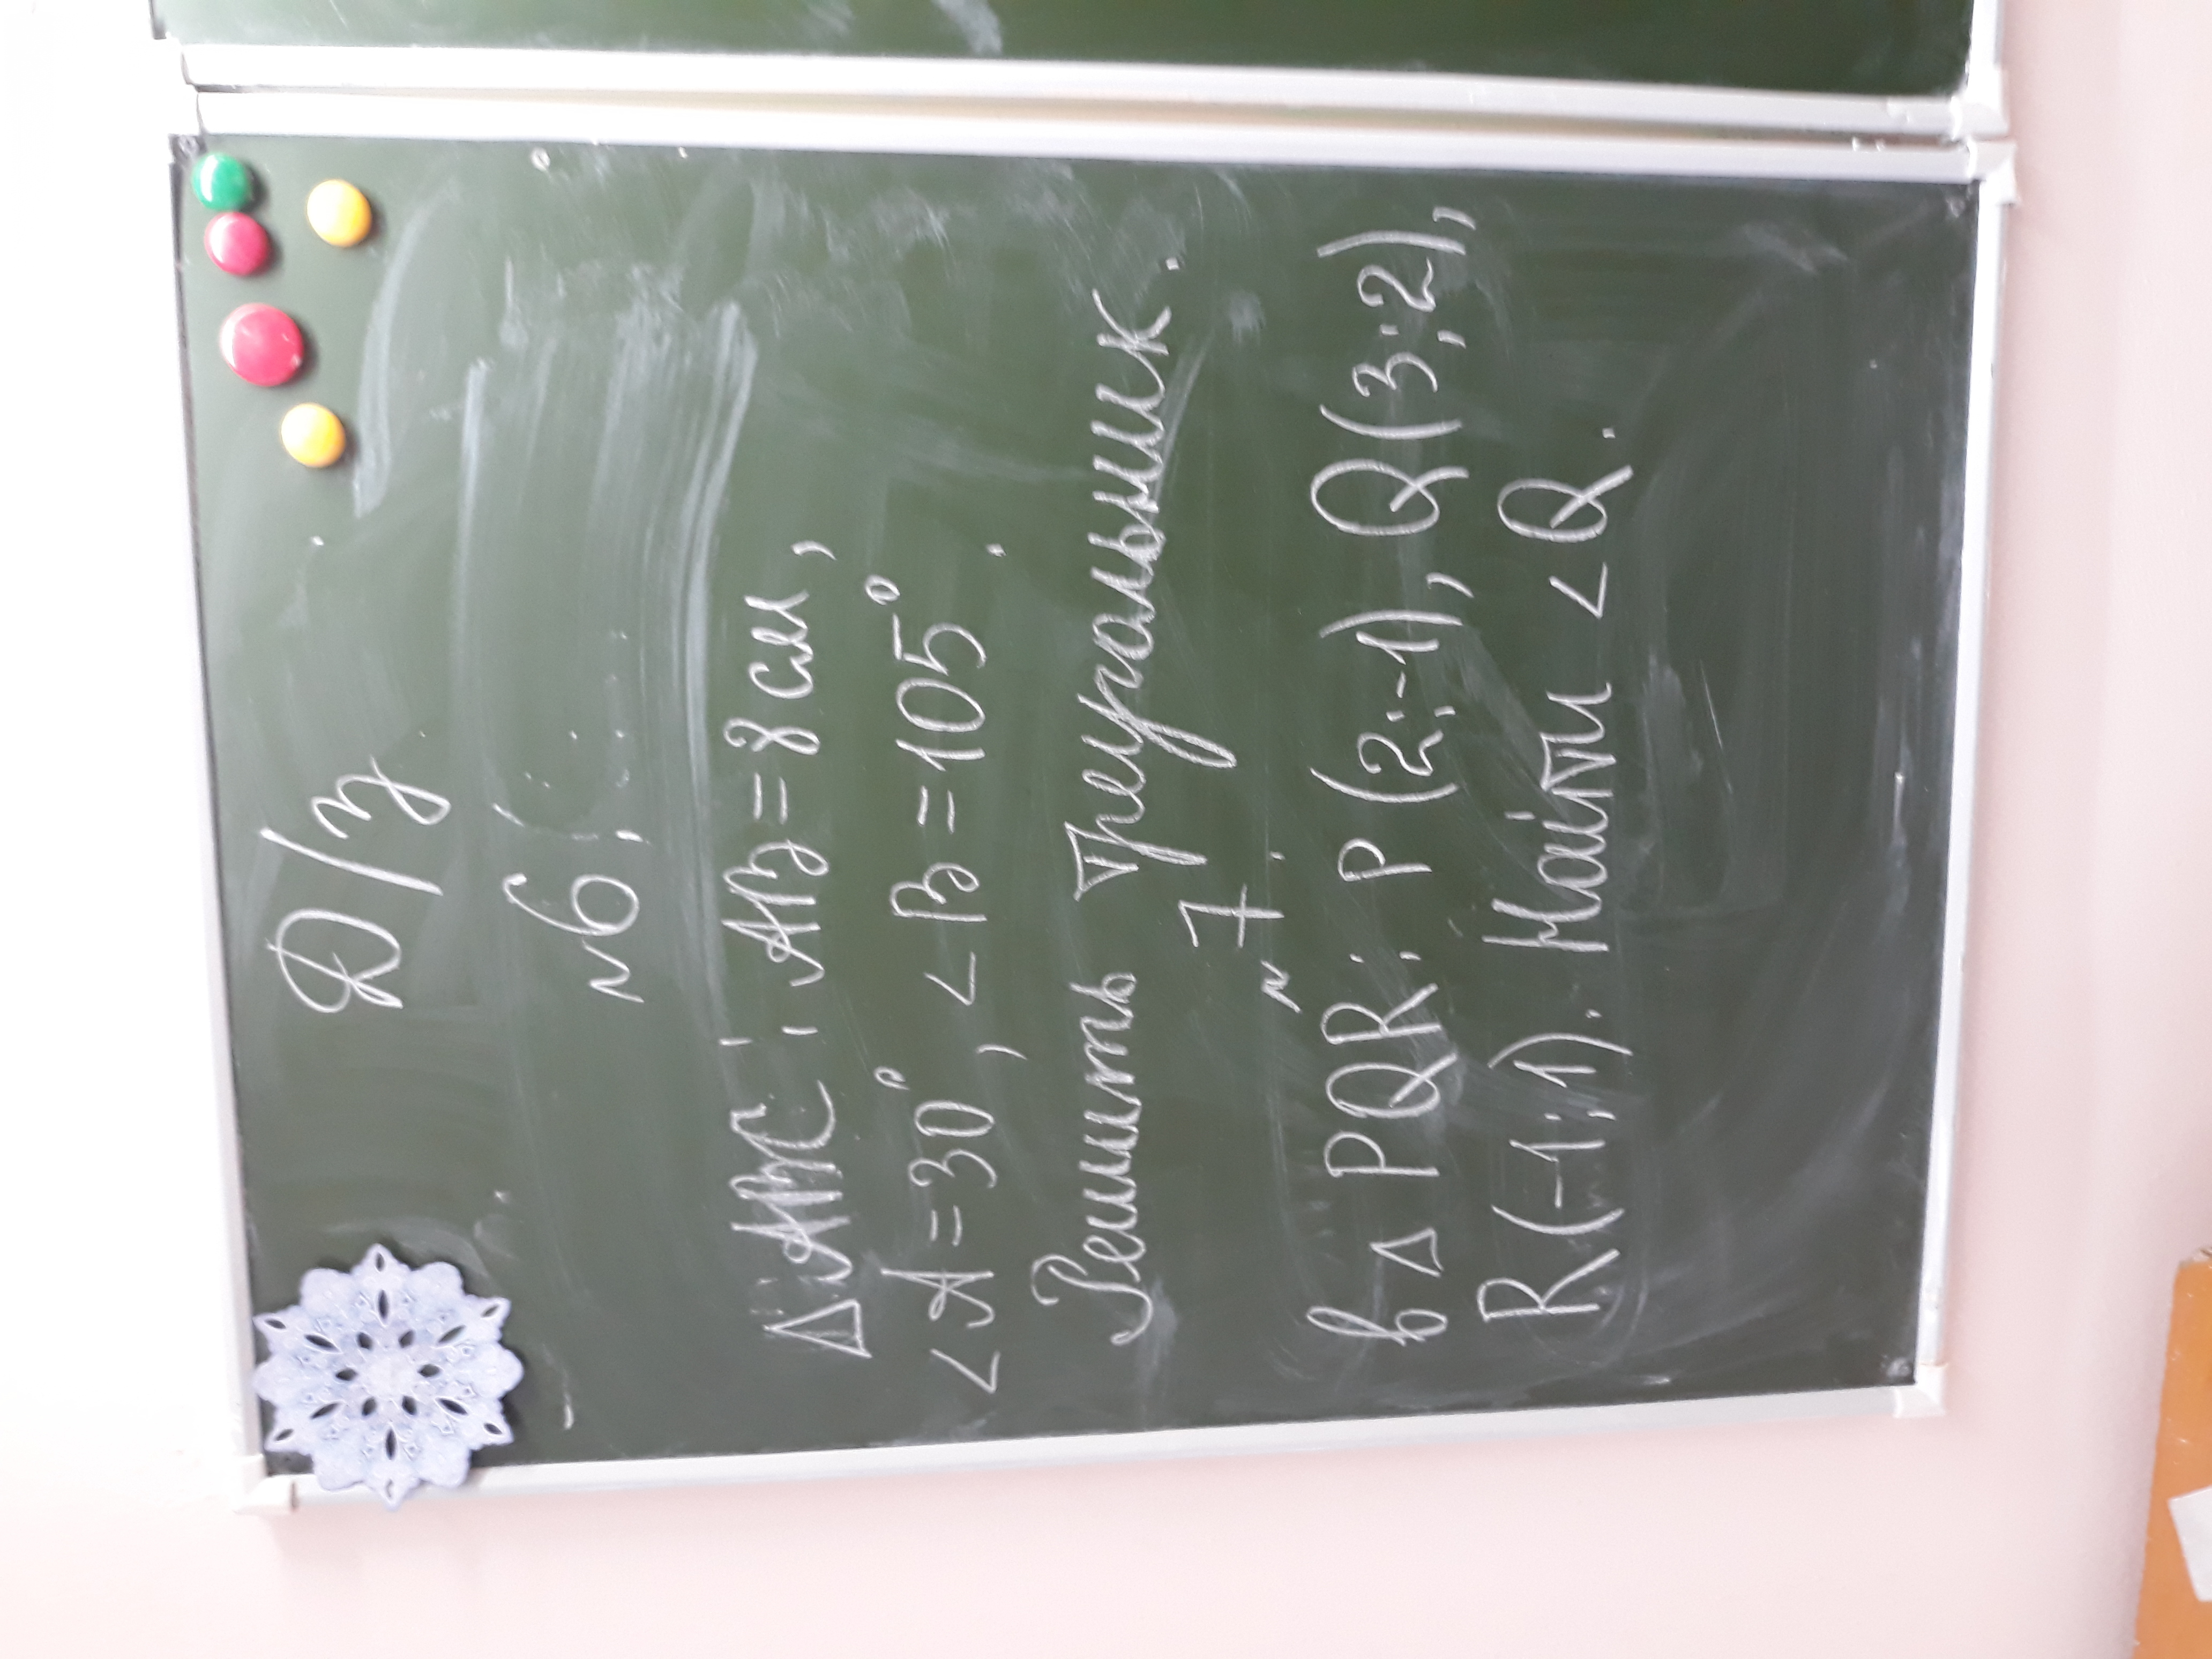 Д/з
№6.
△ABC: AB = 8 см,
<A = 30°, <B = 105°.
Решить треугольник.
№7.
в △ PQR: P (2; -1), Q (3; 2),
R (-1; 1). Найти <Q.